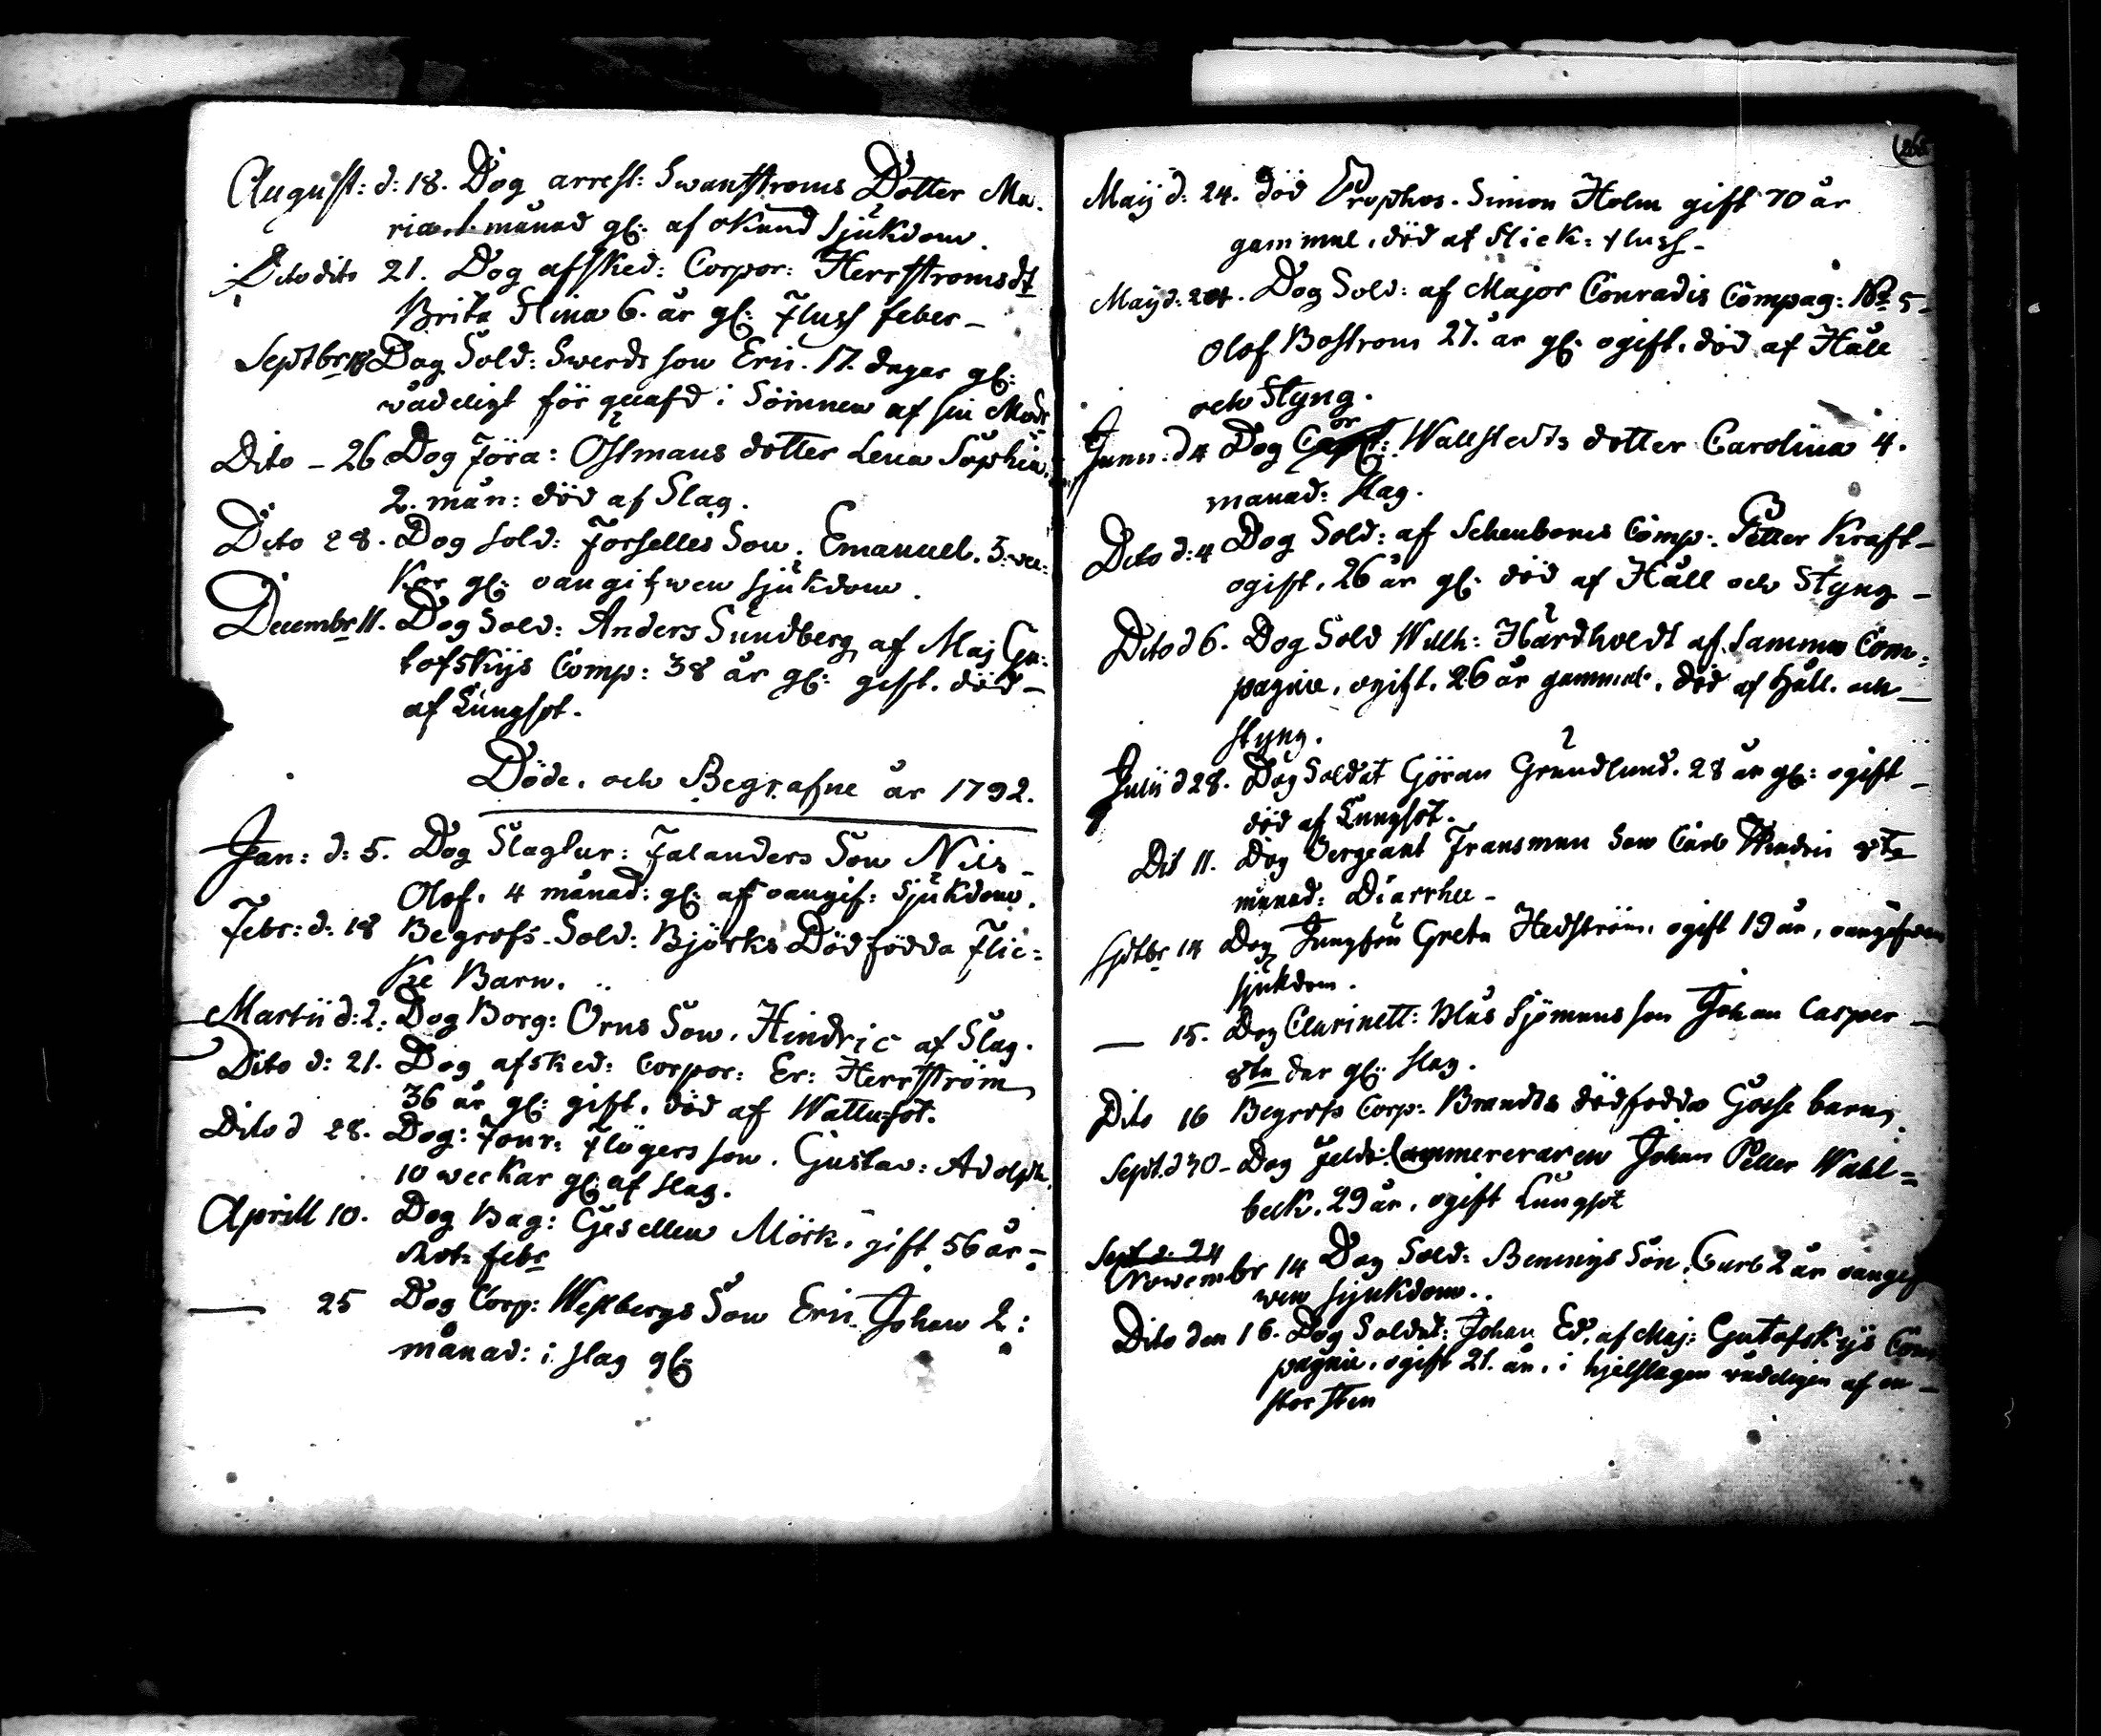 August: d: 18. Dog arrest: Swanströms Dotter Ma-
ria 1. månad gl: af okänd Sjukdom.
Dito dito 21. Dog afsked: Corpor: Herrströms dt
Brita Stina 6. år gl: Fluss feber –
Septbr 18 Dog Sold: Swerds son Eric. 17. dagar gl:
wådeligt för quafd i Sömnen af sin Modr
Dito – 26 Dog Föra: Östmans dotter Lena Sophia.
2. mån: död af Slag.
Dito 28. Dog Sold: Forselles Son. Emanuel. 3. wec:
kor gl: oangifwen sjukdom.
Decembr 11. Dog Sold: Anders Sundberg af Maj Gu:
tofskijs Comp: 38 år gl: gift. död –
af Lungsot.
Döde. och Begrafne år 1792.
Jan: d: 5. Dog Slagtar: Falanders Son Nils –
Olof. 4 månad: gl: af oangif: Sjukdom.
Febr: d: 18 Begrofs Sold: Björks Död födda Flic:
ke Barn.
Martii d: 2. Dog Borg: Orus Son. Hindric af Slag.
Dito d: 21. Dog afsked: Corpor: Er: Herrström
36 år gl: gift. död af Wattusot.
Dito d 28. Dog: Four: Flögers son. Gustav: Adolph.
10 weckar gl: af slag.
Aprill 10. Dog Bag: Gesellen Mörk. gift 56 år –
Röt: febr
— 25 Dog Corp: Westbergs Son Eric Johan 2:
månad: i slag gl:
Maij d: 24. död Prophos. Simon Holm gift 70 år
gammal. död af Stick: fluss –
Maij d: 24. Dog Sold: af Major Conradis Compag: No 5 –
Olof Boström 27. år gl: ogift. död af Håll
och Styng.
Junii d 4 Dog Cor: Wallstedts dotter Carolina 4.
månad: slag.
Dito d: 4 Dog Sold: af Schenboms Comp: Petter Kraft –
ogift. 26 år gl: död af Håll och Styng –
Dito d 6. Dog Sold Wilh: Hårdholdt af samma Com:
pagnie, ogift. 26 år gammal. död af Håll. och –
styng.
Julii d 28. Dog Soldat Göran Grundlund. 28 år gl: ogift –
död af Lungsot.
Dit 11. Dog Sergeant Fransman Son Carl Fredric 8ta
månad: Diarrhee –
Septbr 14 Dog Jungfru Greta Hedström. ogift 19 år, oangifwen
sjukdom.
— 15. Dog Clarinett: Blås Sjömans son Johan Casper –
8ta dar gl: slag.
Dito 16 Begrofs Corp: Brandts dödfödda Gosse barn.
Sept. d 30 – Dog Feldt Cammereraren Johan Petter Wahl=
beck. 29 år. ogift Lungsot
Sept d. 24
Nowembr 14 Dog Sold: Bennings Son. Carl 2 år oangif
wen sjukdom.
Dito den 16. Dog Soldat: Johan Ed. af Maj: Gutofskijs Com
pagnie. ogift 21. år. i hjelslagen wådeligen af en –
stor sten